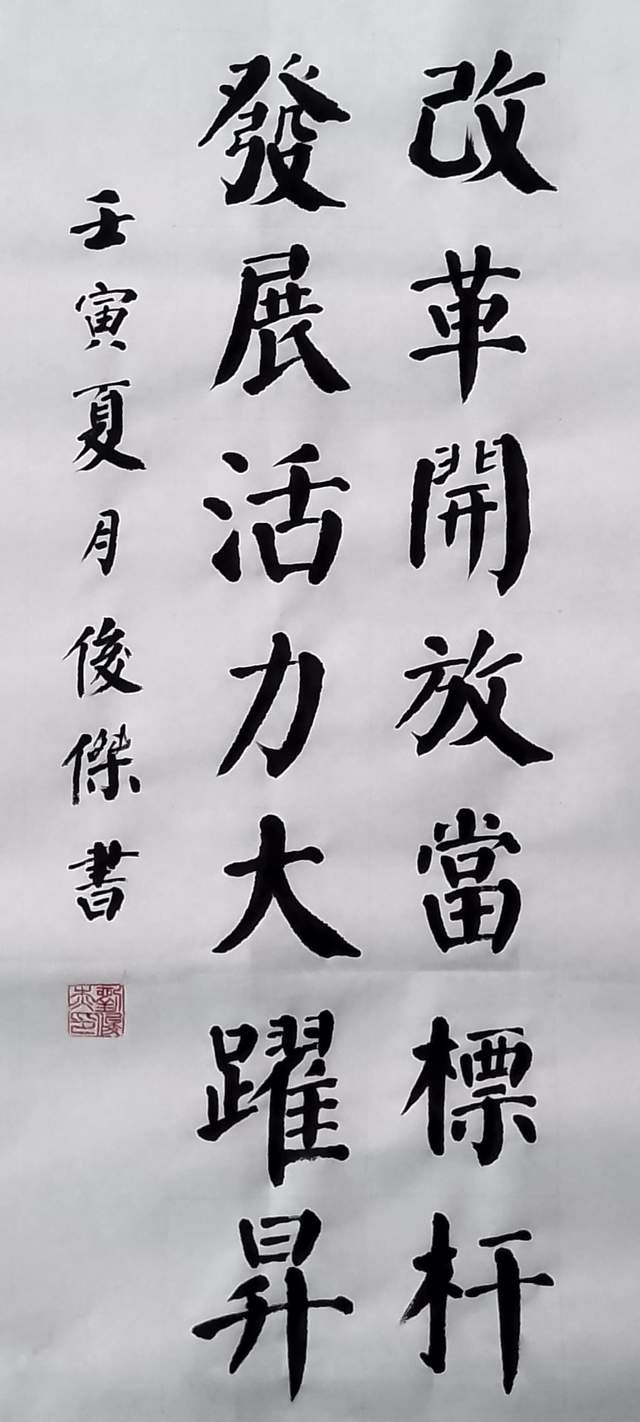 改革開放當標杆
發展活力大躍昇
壬寅夏月俊傑書